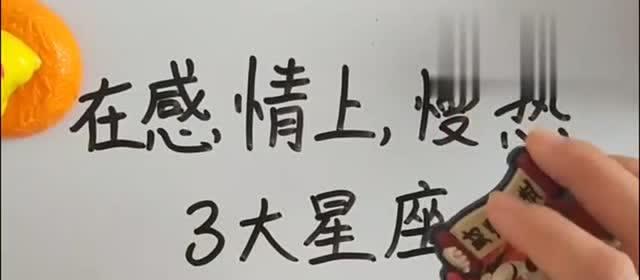 在感情上,慢热
3大星座